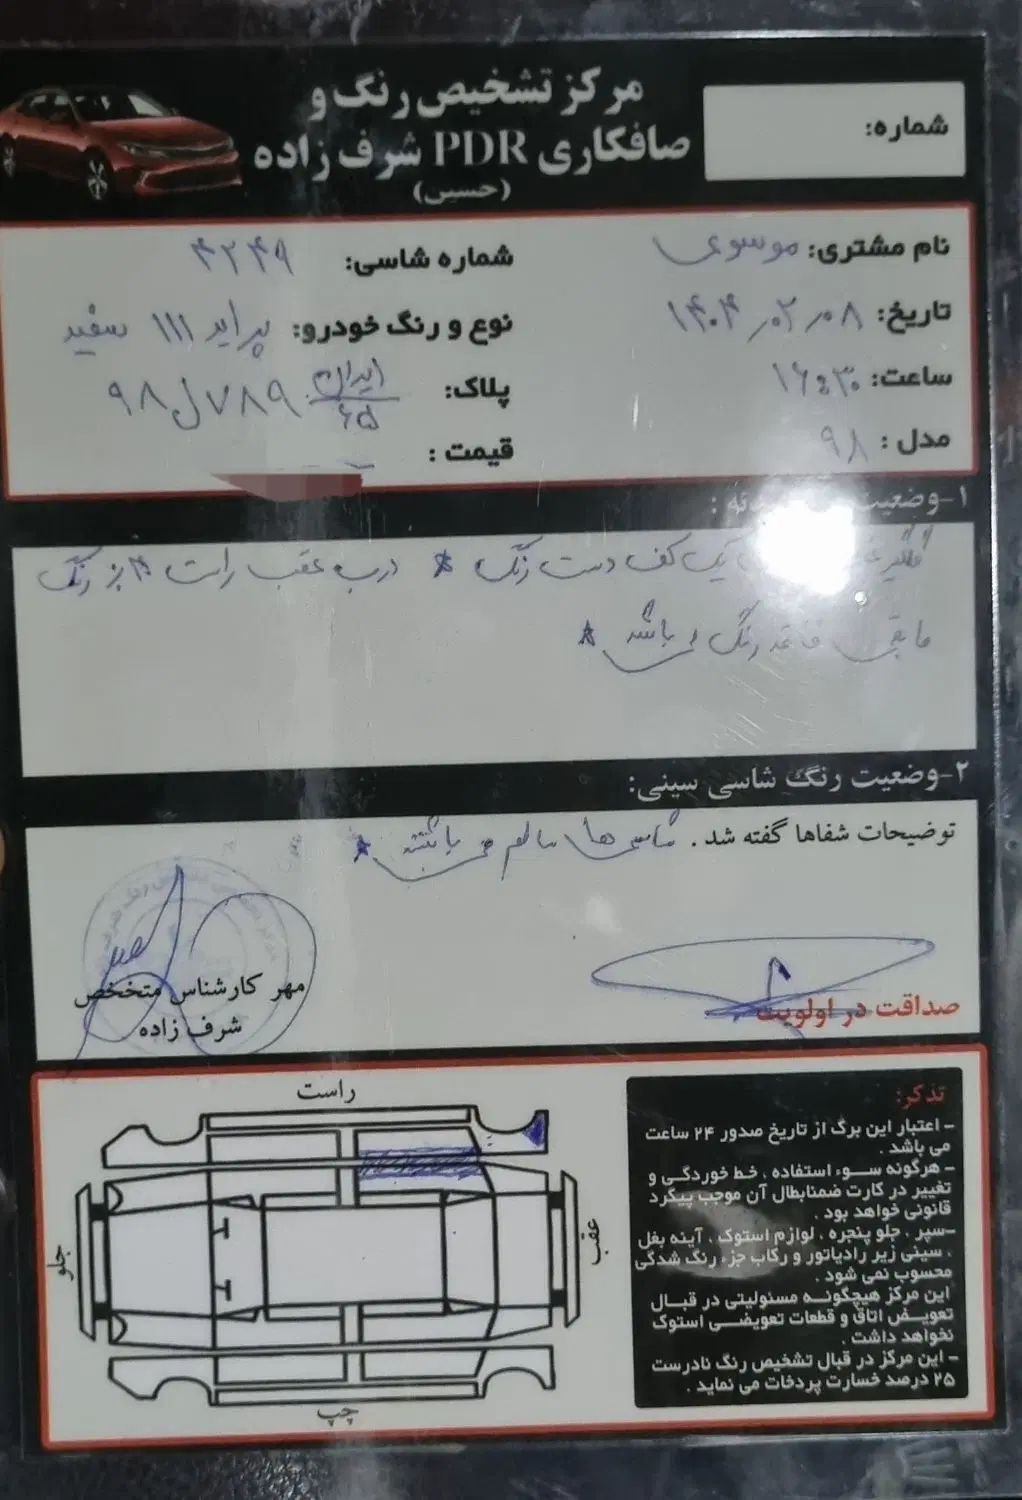 مرکز تشخیص رنگ و
صافکاری PDR شرف زاده
(حسین)
شماره:
نام مشتری: موسوی
شماره شاسی: ۴۲۴۹
تاریخ: ۱۴۰۴٫۰۲٫۰۸
نوع و رنگ خودرو: پراید ۱۱۱ سفید
ساعت: ۱۶:۳۰
پلاک: ایران ۶۵ ۷۸۹ل۹۸
مدل: ۹۸
قیمت:
۱-وضعیت
گلگیر یک کف دست رنگ * درب عقب راست رنگ
مابقی فاقد رنگ می باشد *
۲-وضعیت رنگ شاسی سینی:
توضیحات شفاها گفته شد. شاسی ها سالم می باشند *
مهر کارشناس متخخص
شرف زاده
صداقت در اولویت
راست
جلو
عقب
چپ
تذکر:
- اعتبار این برگ از تاریخ صدور ۲۴ ساعت
می باشد.
- هرگونه سوء استفاده، خط خوردگی و
تغییر در کارت ضمنابطال آن موجب پیگرد
قانونی خواهد بود.
-سپر، جلو پنجره، لوازم استوک، آینه بغل
، سینی زیر رادیاتور و رکاب جزء رنگ شدگی
محسوب نمی شود.
این مرکز هیچگونه مسئولیتی در قبال
تعویض اتاق و قطعات تعویضی استوک
نخواهد داشت.
- این مرکز در قبال تشخیص رنگ نادرست
۲۵ درصد خسارت پردخات می نماید.